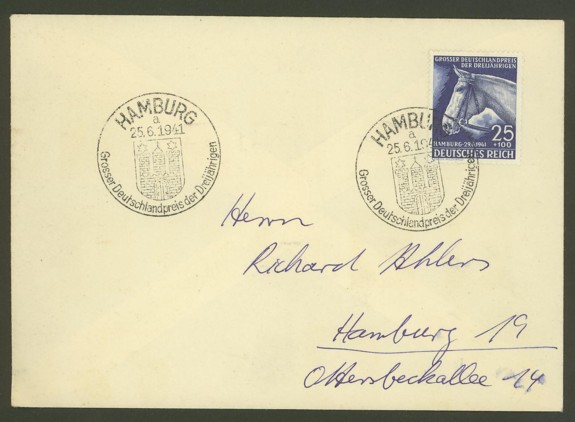 HAMBURG
a
25.6.1941
Grosser Deutschlandpreis der Dreijährigen
HAMBU
a
25.6.194
Grosser Deutschlandpreis der Dreijährigen
GROSSER DEUTSCHLANDPREIS
DER DREIJÄHRIGEN
25
+100
HAMBURG-29.6.1941
DEUTSCHES REICH
Herrn
Richard Ahlers
Hamburg 19
Ottersbeckallee 14